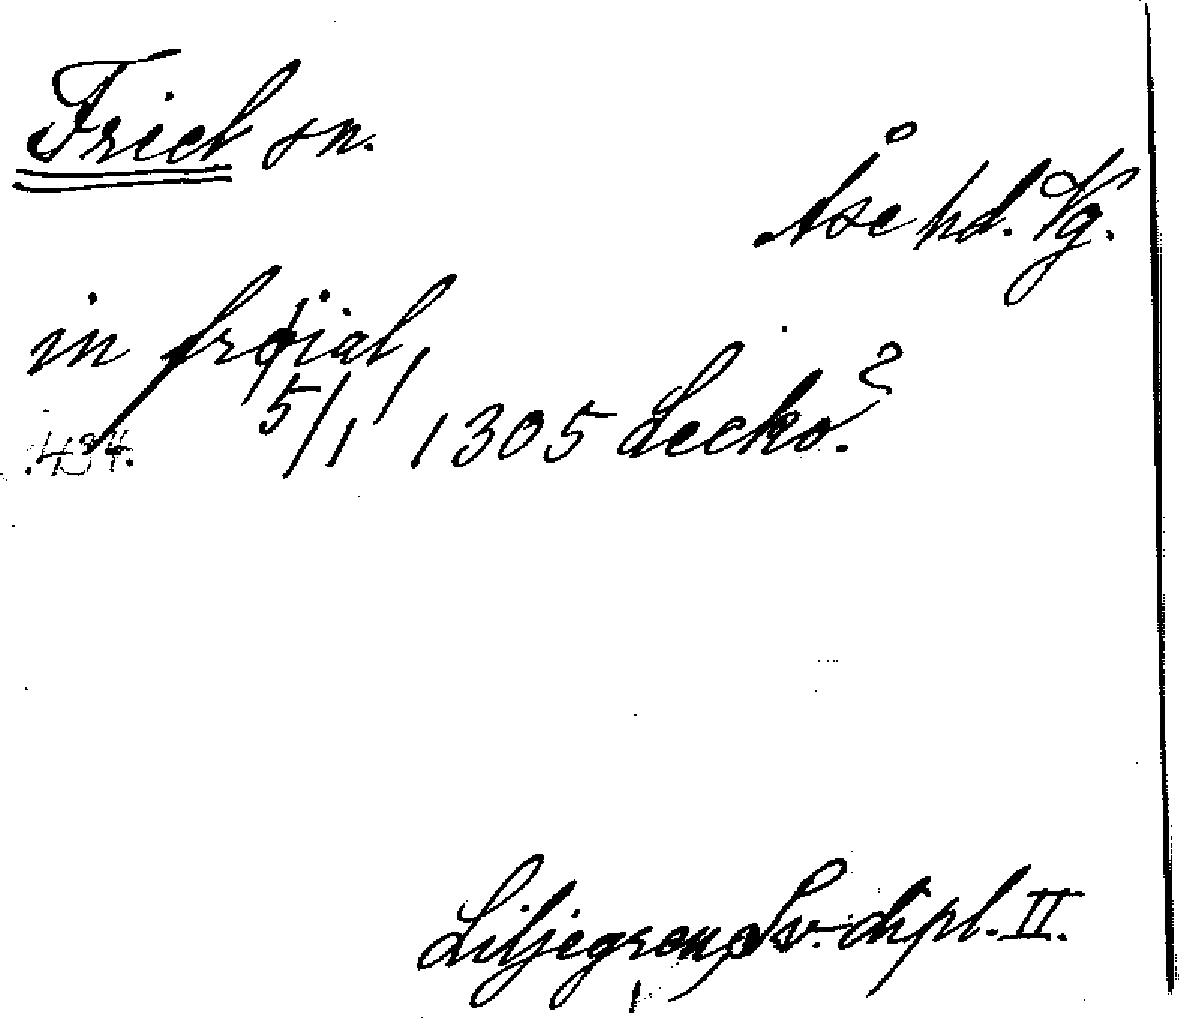 Friel sn.
Åse hd. Vg.
in frøiæl,
434. 5/1 1305 Lecko?.
Liljegren, Sv. dipl. II.